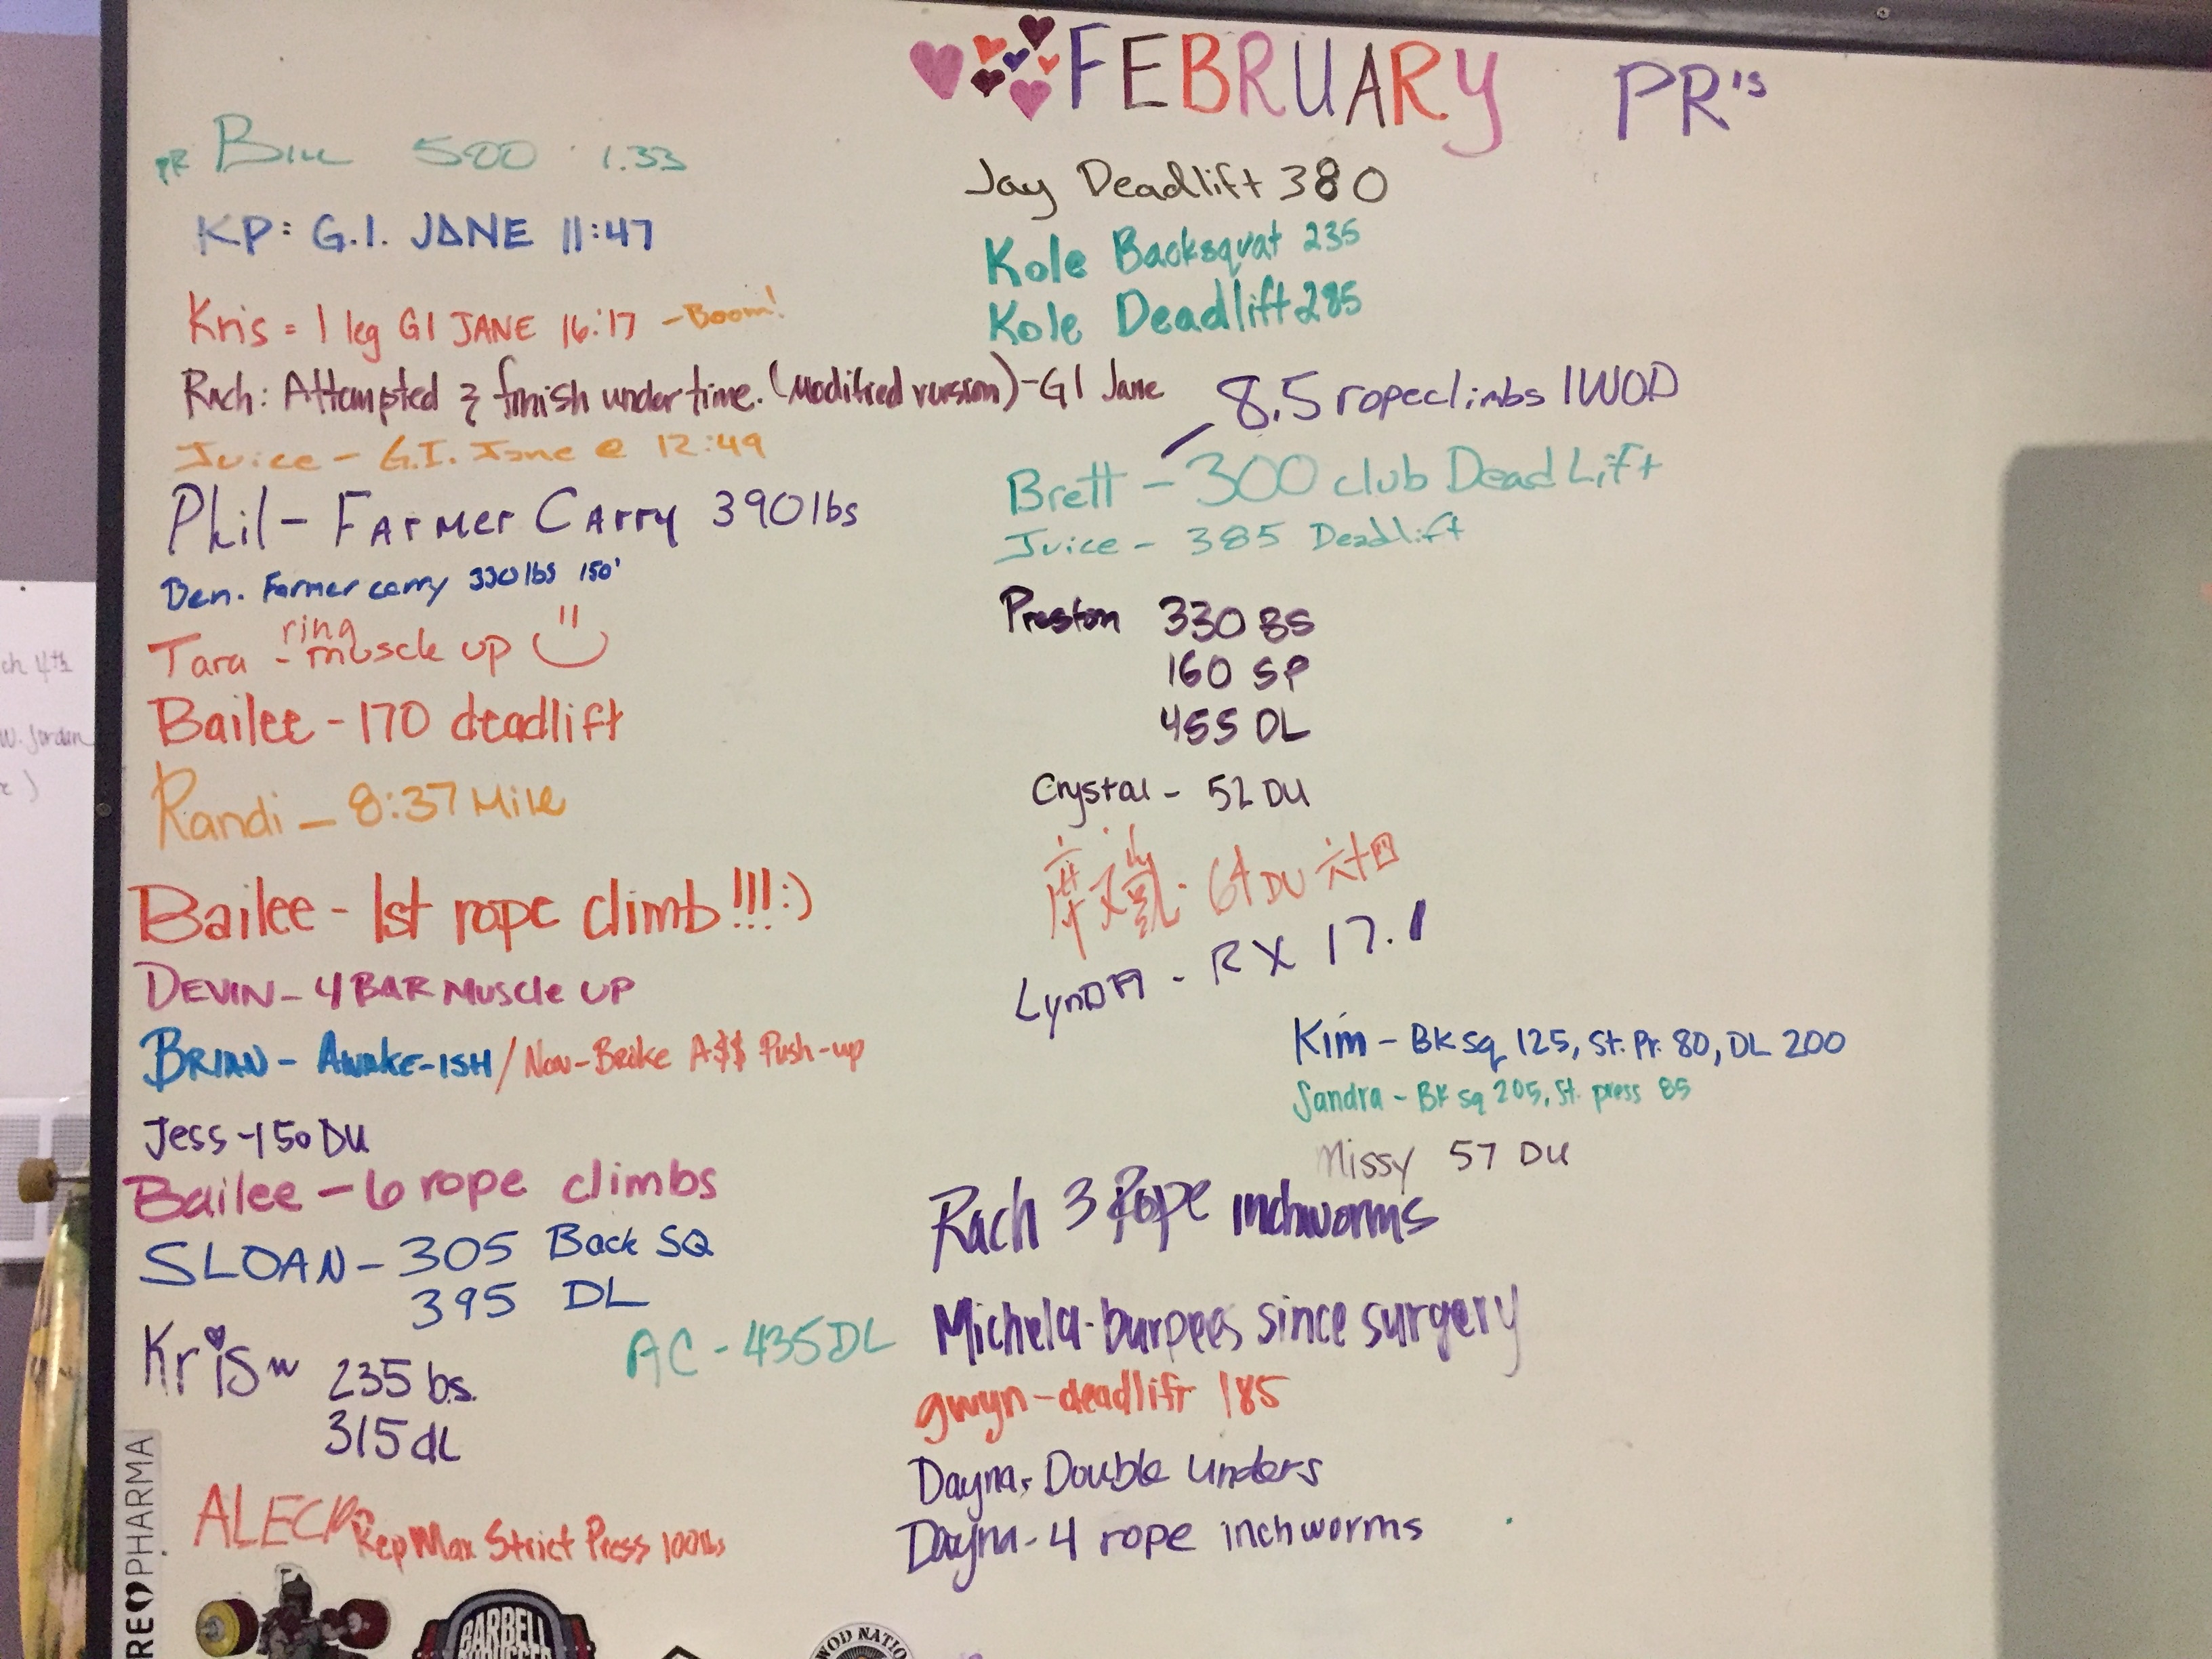 FEBRUARY PR's
PR Bill 500 1.33
KP: G.I. JANE 11:47
Kris = 1 kg GI JANE 16:17 - Boom!
Rach: Attempted & finish under time. (Modified version) - GI Jane
Juice - G.I. Jane @ 12:49
Phil - FArmer CArry 390lbs
Ben. Farmer carry 330 lbs 150'
Tara - ring muscle up
Bailee - 170 deadlift
Randi - 8:37 Mile
Bailee - 1st rope climb!!! :)
DEVIN - 4 BAR Muscle UP
BRIAN - AWAKE-ISH / Non-Broke A$$ Push-up
Jess - 150 DU
Bailee - 6 rope climbs
SLOAN - 305 Back SQ
395 DL
Kris w 235 b.s.
315 dL
AC - 435 DL
ALEC Rep Max Strict Press 100lbs
Jay Deadlift 380
Kole Backsquat 235
Kole Deadlift 285
8.5 ropeclimbs 1WOD
Brett - 300 club DeadLift
Juice - 385 Deadlift
Preston 330 BS
160 SP
455 DL
Crystal - 52 DU
64 DU 六十四
LynDA - RX 17.1
Kim - BK Sq 125, St. Pr. 80, DL 200
Sandra - BK sq 205, St. press 85
Missy 57 DU
Rach 3 Rope inchworms
Michela - burpees since surgery
gwyn - deadlift 185
Dayna. Double unders
Dayna - 4 rope inchworms
REPHARMA
BARBELL
WOD NATIO
ch 4th
W. Jordan